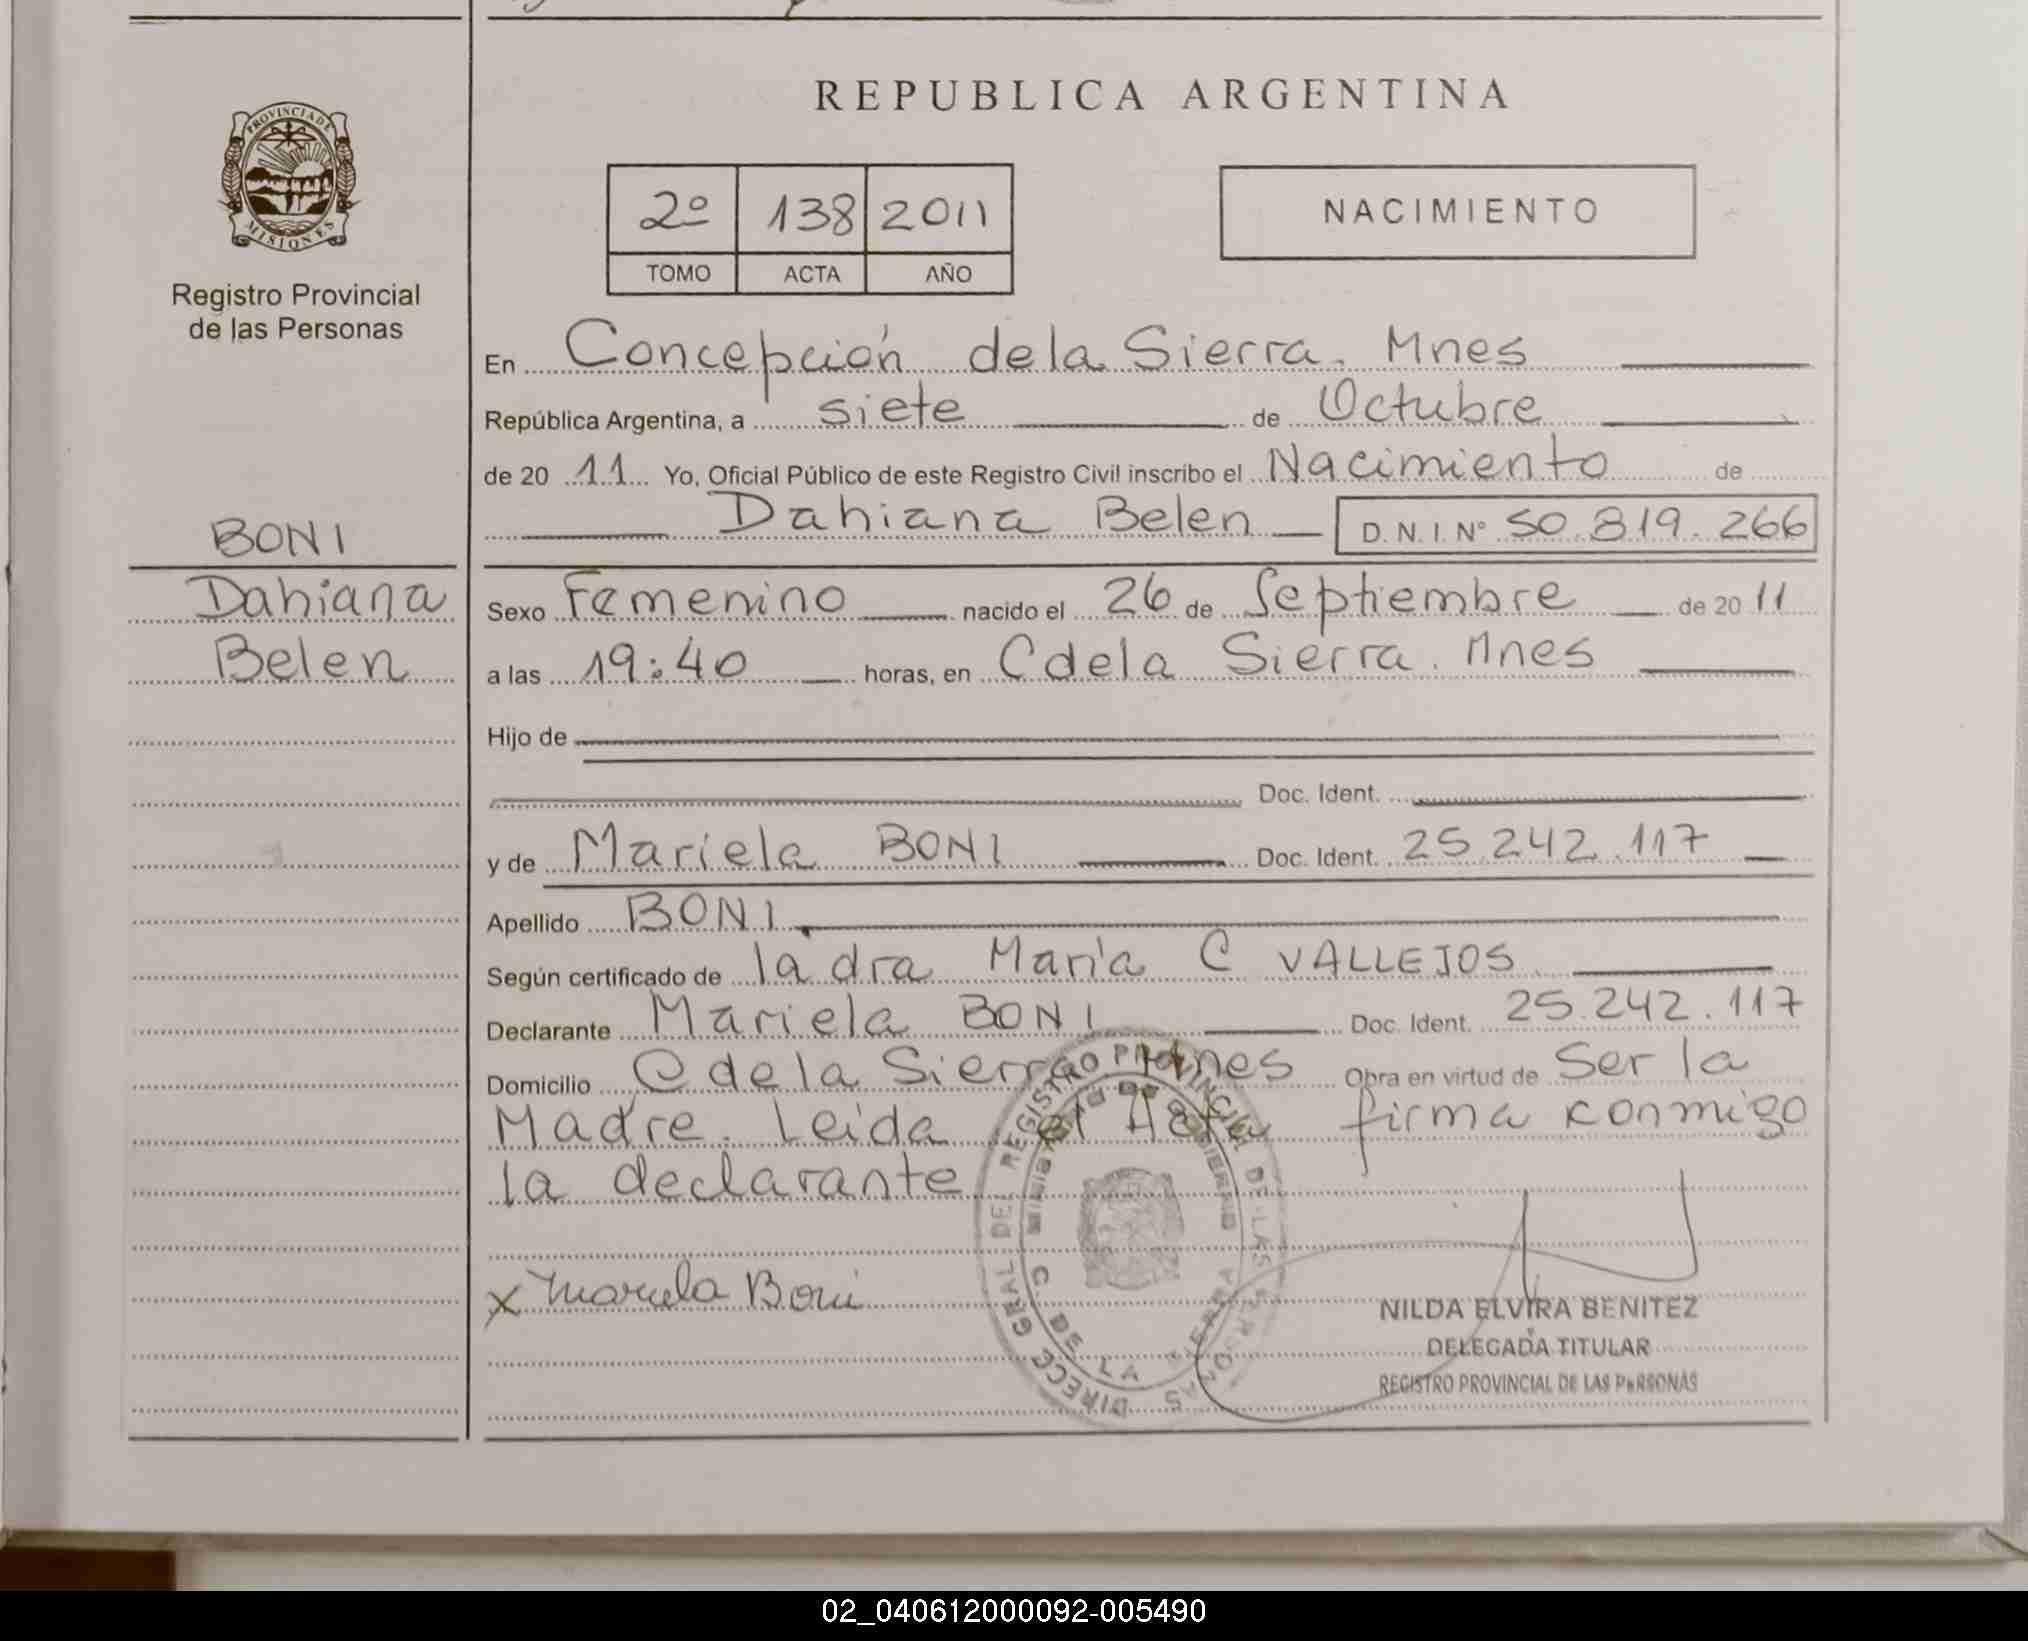 REPUBLICA ARGENTINA
PROVINCIA DE MISIONES
Registro Provincial
de las Personas
2º 138 2011
TOMO ACTA AÑO
NACIMIENTO
En Concepción de la Sierra. Mnes
República Argentina, a siete de Octubre
de 20 11 Yo, Oficial Público de este Registro Civil inscribo el Nacimiento de
Dahiana Belen D.N.I. Nº 50.819.266
BONI
Dahiana
Belen
Sexo Femenino nacido el 26 de Septiembre de 20 11
a las 19:40 horas, en C de la Sierra. Mnes
Hijo de
Doc. Ident.
y de Mariela BONI Doc. Ident. 25.242.117
Apellido BONI
Según certificado de la dra María C VALLEJOS
Declarante Mariela BONI Doc. Ident. 25.242.117
Domicilio C de la Sierra Mnes Obra en virtud de Ser la
Madre. Leida el Acta firma conmigo
la declarante
x Mariela Boni
DIRECC. GRAL. DEL REGISTRO PROVINCIAL DE LAS PERSONAS
MINISTERIO DE GOBIERNO
C. DE LA SIERRA
NILDA ELVIRA BENITEZ
DELEGADA TITULAR
REGISTRO PROVINCIAL DE LAS PERSONAS
02_040612000092-005490